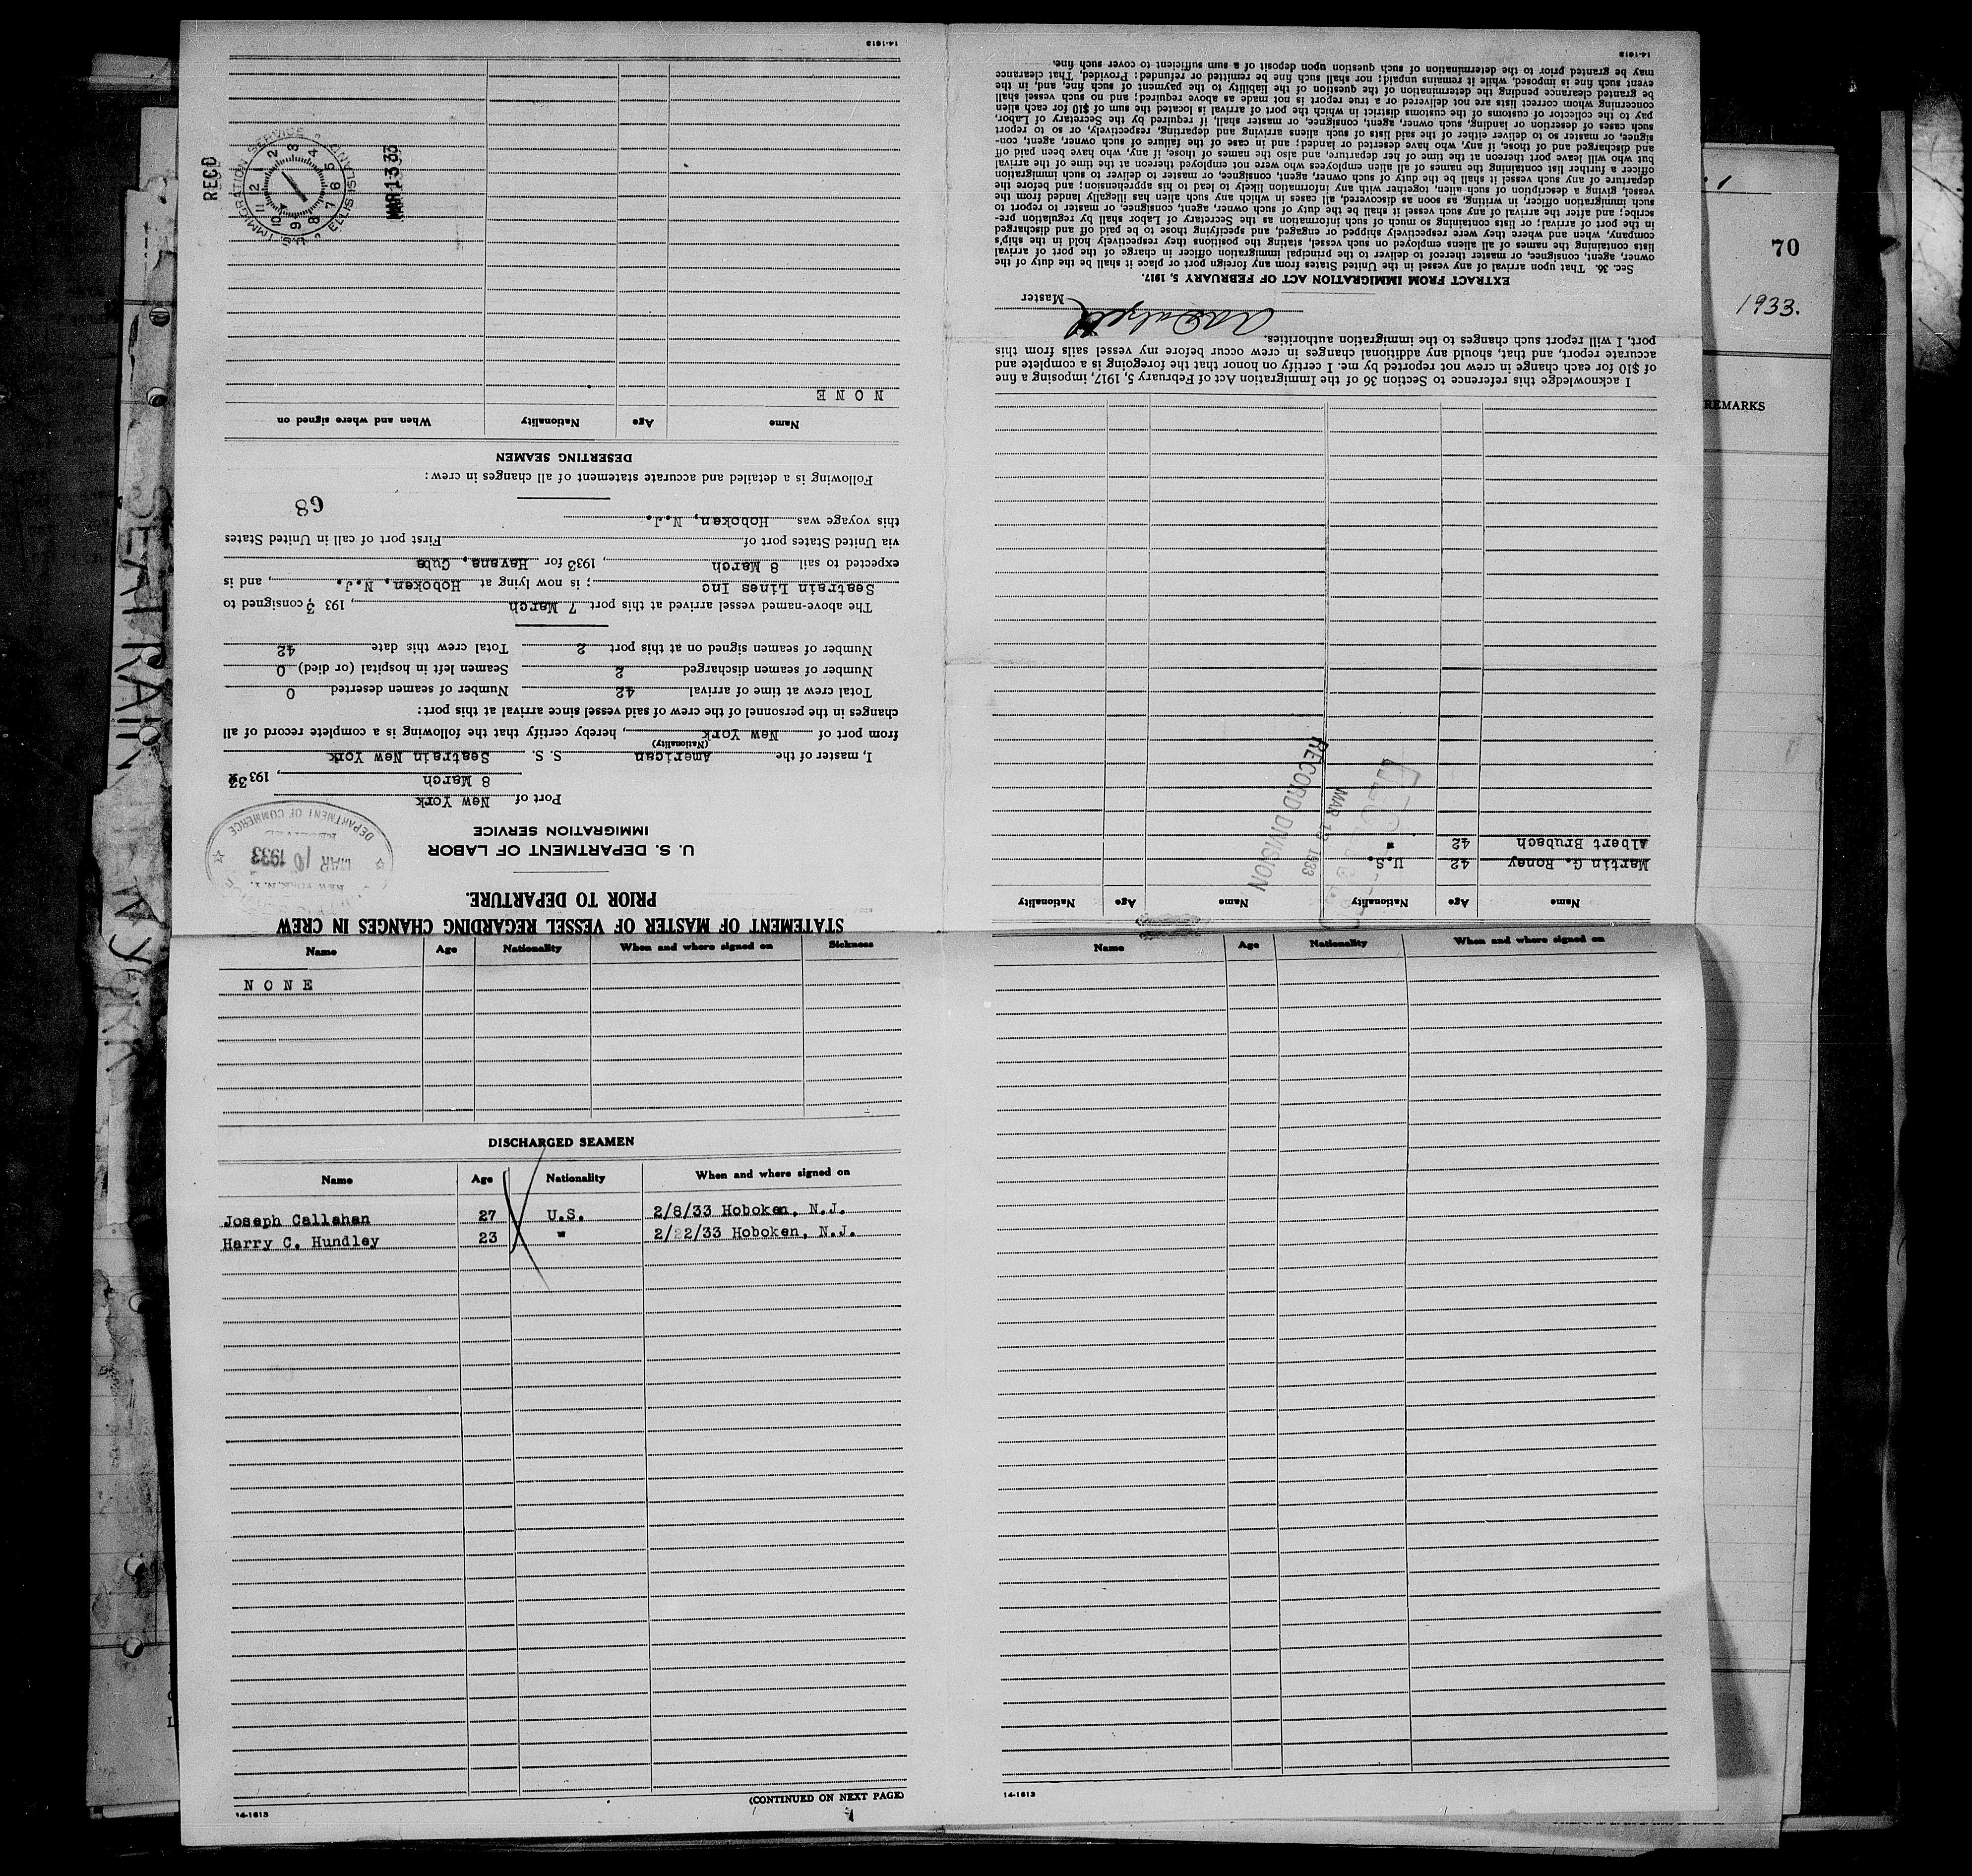 STATEMENT OF MASTER OF VESSEL REGARDING CHANGES IN CREW
PRIOR TO DEPARTURE.
U. S. DEPARTMENT OF LABOR
IMMIGRATION SERVICE
NEW YORK, N.Y.
MAR 10 1933
RECEIVED
DEPARTMENT OF COMMERCE
Port of New York
8 March, 1933
I, master of the American S. S. Seatrain New York
(Nationality)
from port of New York, hereby certify that the following is a complete record of all
changes in the personnel of the crew of said vessel since arrival at this port:
Total crew at time of arrival 42 Number of seamen deserted 0
Number of seamen discharged 2 Seamen left in hospital (or died) 0
Number of seamen signed on at this port 2 Total crew this date 42
The above-named vessel arrived at this port 7 March, 193 3 consigned to
Seatrain Lines Inc; is now lying at Hoboken, N.J., and is
expected to sail 8 March, 1933 for Havana, Cuba
via United States port of First port of call in United States
this voyage was Hoboken, N.J.
68
Following is a detailed and accurate statement of all changes in crew:
DESERTING SEAMEN
Name Age Nationality When and where signed on
N O N E
RECD
MAR 13 33
U.S. IMMIGRATION SERVICE ELLIS ISLAND
1 2 3 4 5 6 7 8 9 10 11 12
14-1613
Name Age Nationality When and where signed on Sickness
N O N E
DISCHARGED SEAMEN
Name Age Nationality When and where signed on
Joseph Callahan 27 U.S. 2/8/33 Hoboken, N.J.
Harry C. Hundley 23 " 2/22/33 Hoboken, N.J.
(CONTINUED ON NEXT PAGE)
14-1613
Name Age Nationality When and where signed on
14-1613
Name Age Nationality Name Age Nationality
Martin G. Roney 42 U.S.
Albert Brubach 42 "
MAR 13 1933
RECORD DIVISION
I acknowledge this reference to Section 36 of the Immigration Act of February 5, 1917, imposing a fine
of $10 for each change in crew not reported by me. I certify on honor that the foregoing is a complete and
accurate report, and that, should any additional changes in crew occur before my vessel sails from this
port, I will report such changes to the immigration authorities.
Master
EXTRACT FROM IMMIGRATION ACT OF FEBRUARY 5, 1917.
Sec. 36. That upon arrival of any vessel in the United States from any foreign port or place it shall be the duty of the
owner, agent, consignee, or master thereof to deliver to the principal immigration officer in charge of the port of arrival
lists containing the names of all aliens employed on such vessel, stating the positions they respectively hold in the ship's
company, when and where they were respectively shipped or engaged, and specifying those to be paid off and discharged
in the port of arrival; or lists containing so much of such information as the Secretary of Labor shall by regulation pre-
scribe; and after the arrival of any such vessel it shall be the duty of such owner, agent, consignee, or master to report to
such immigration officer, in writing, as soon as discovered, all cases in which any such alien has illegally landed from the
vessel, giving a description of such alien, together with any information likely to lead to his apprehension; and before the
departure of any such vessel it shall be the duty of such owner, agent, consignee, or master to deliver to such immigration
officer a further list containing the names of all alien employees who were not employed thereon at the time of the arrival
but who will leave port thereon at the time of her departure, and also the names of those, if any, who have been paid off
and discharged and of those, if any, who have deserted or landed; and in case of the failure of such owner, agent, con-
signee, or master so to deliver either of the said lists of such aliens arriving and departing, respectively, or so to report
such cases of desertion or landing, such owner, agent, consignee, or master shall, if required by the Secretary of Labor,
pay to the collector of customs of the customs district in which the port of arrival is located the sum of $10 for each alien
concerning whom correct lists are not delivered or a true report is not made as above required; and no such vessel shall
be granted clearance pending the determination of the question of the liability to the payment of such fine, and, in the
event such fine is imposed, while it remains unpaid; nor shall such fine be remitted or refunded: Provided, That clearance
may be granted prior to the determination of such question upon deposit of a sum sufficient to cover such fine.
14-1613
70
1933.
REMARKS
SEATRAIN NEW YORK